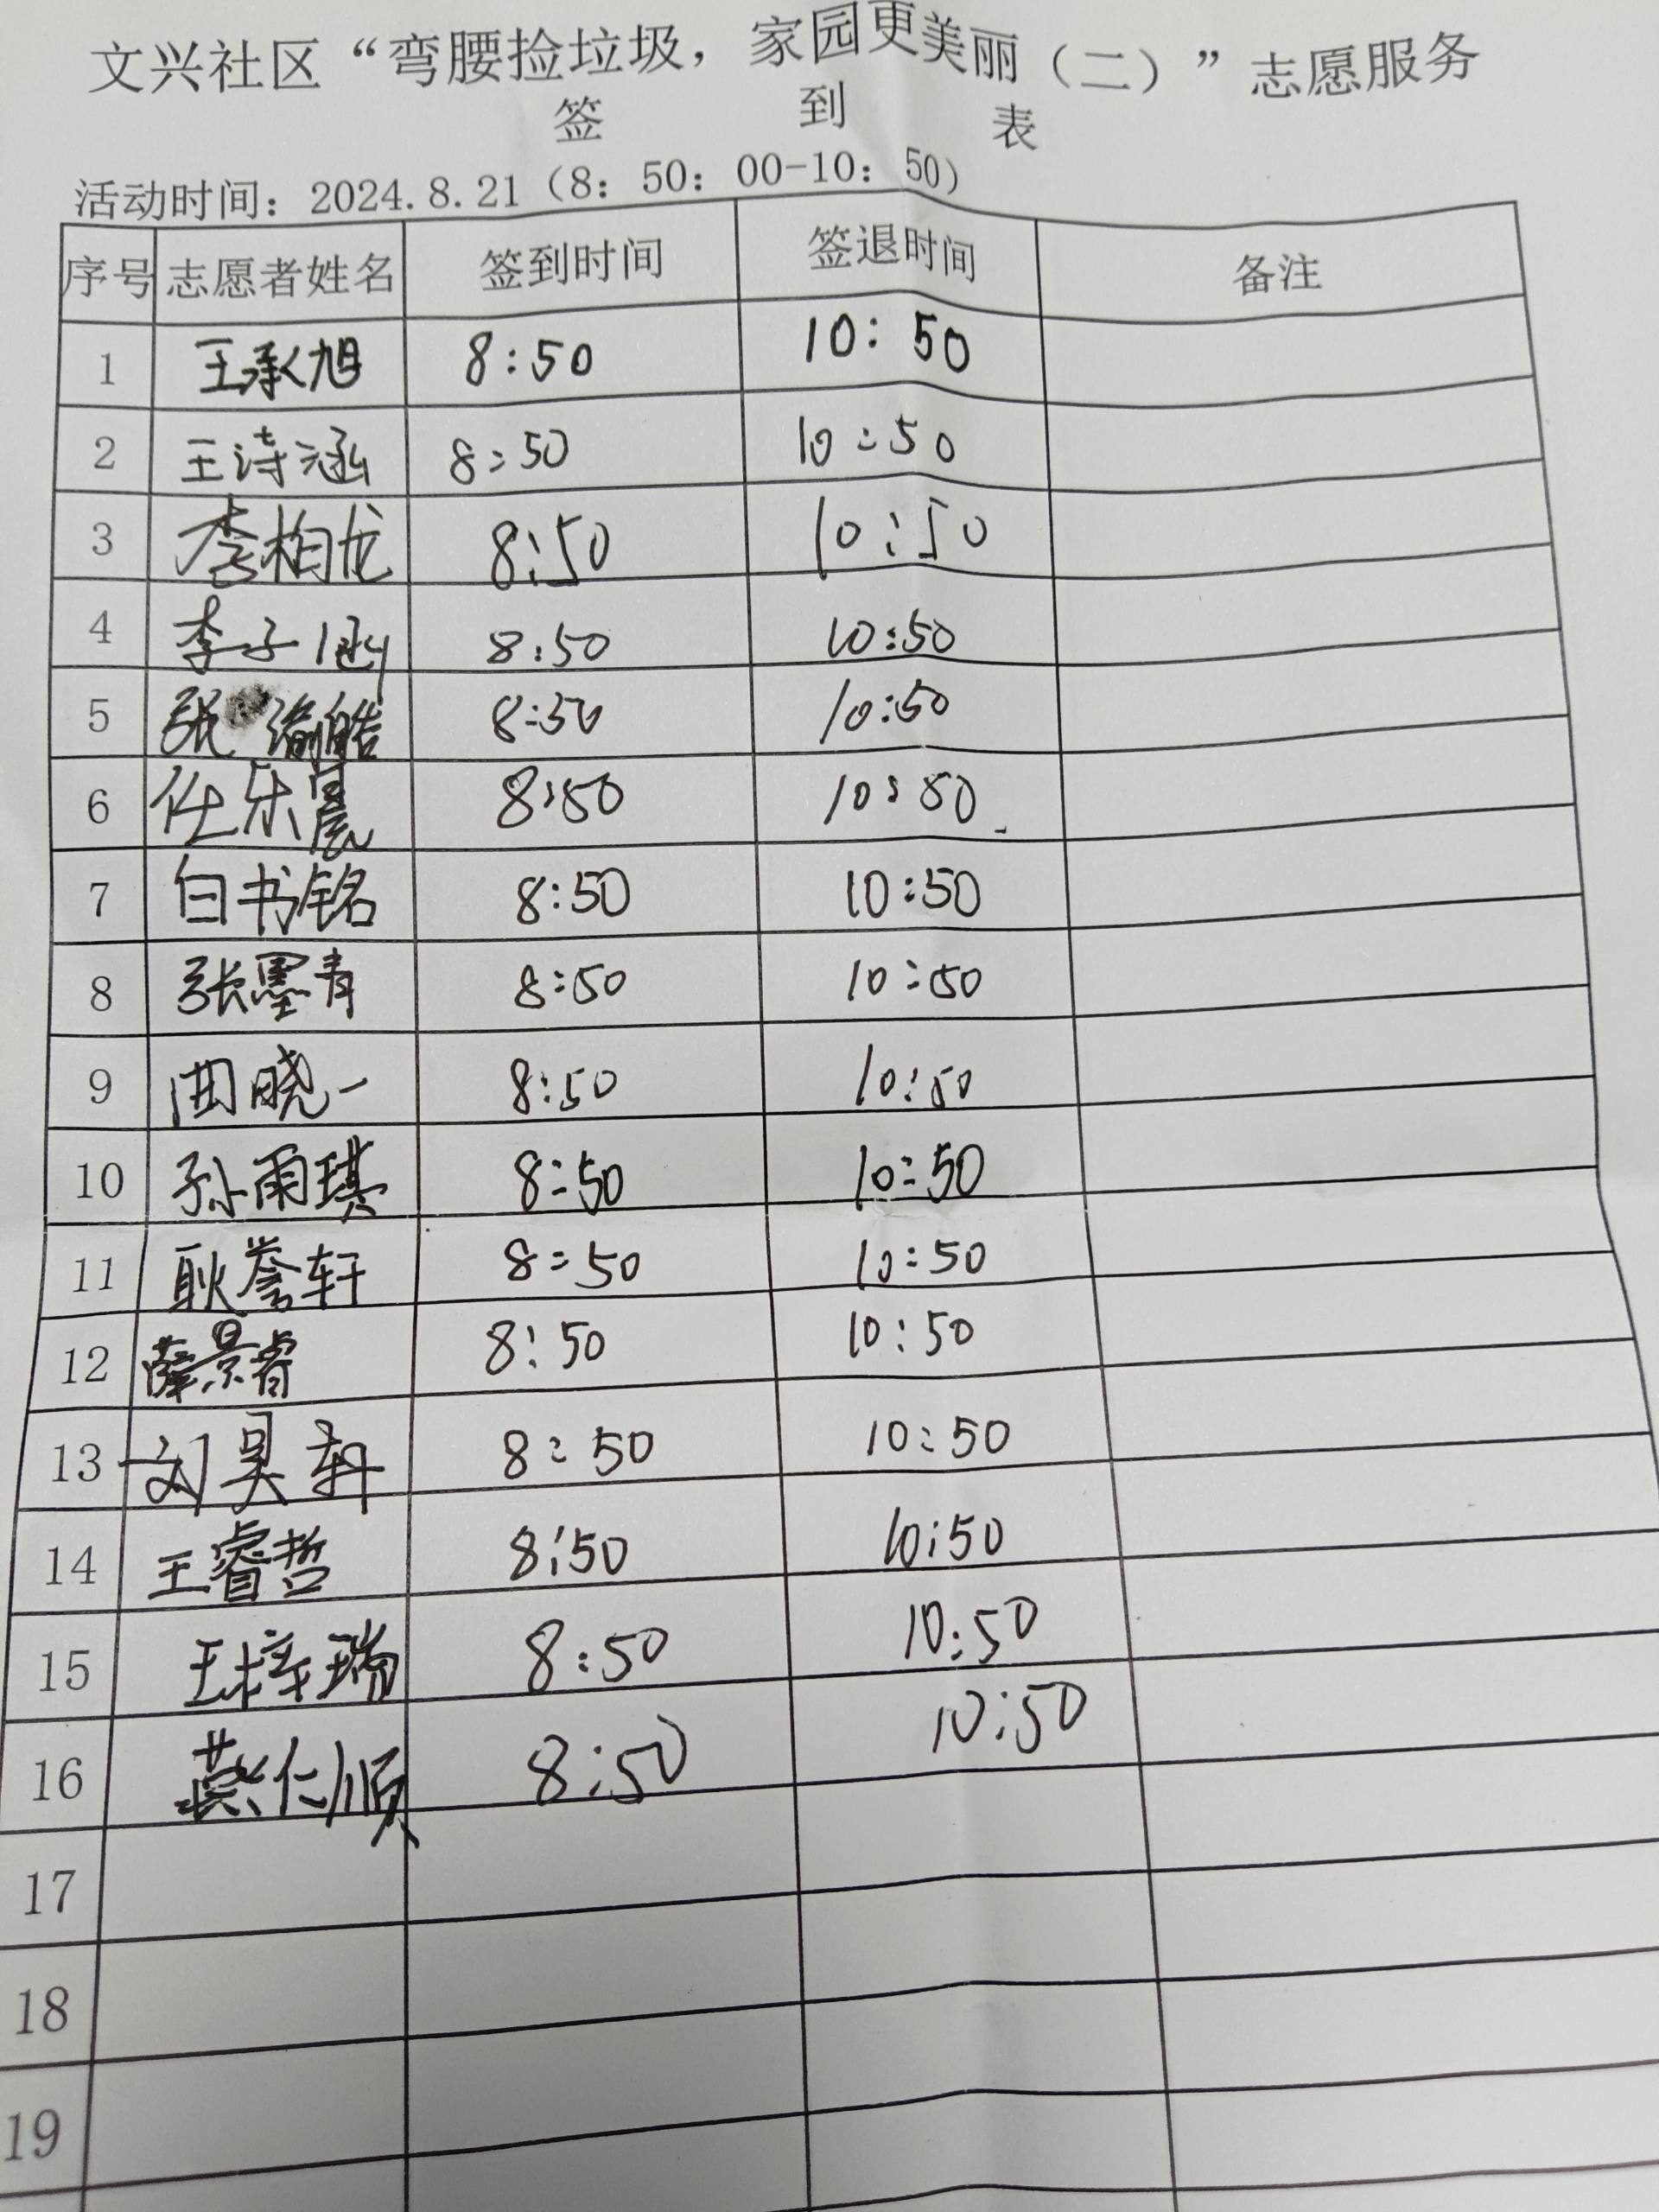 文兴社区“弯腰捡垃圾，家园更美丽（二）”志愿服务
签 到 表
活动时间：2024.8.21（8：50：00-10：50）
序号 志愿者姓名 签到时间 签退时间 备注
1 王承旭 8:50 10:50
2 王诗涵 8:50 10:50
3 李柏龙 8:50 10:50
4 李子涵 8:50 10:50
5 张 皓 8:50 10:50
6 任乐晨 8:50 10:50
7 白书铭 8:50 10:50
8 张墨青 8:50 10:50
9 曲晓一 8:50 10:50
10 孙雨琪 8:50 10:50
11 耿誉轩 8:50 10:50
12 薛景睿 8:50 10:50
13 刘昊轩 8:50 10:50
14 王睿哲 8:50 10:50
15 王梓瑞 8:50 10:50
16 仁顺 8:50 10:50
17
18
19